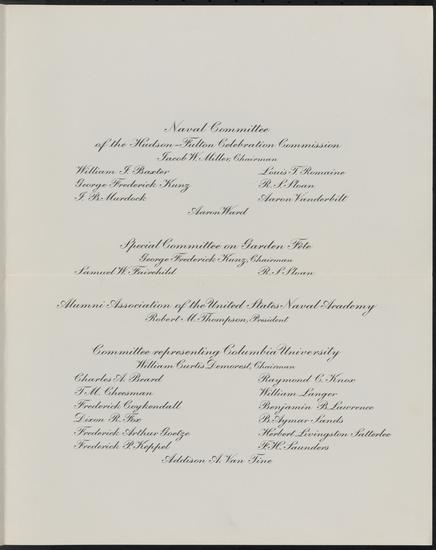 Naval Committee
of the Hudson-Fulton Celebration Commission
Jacob W. Miller, Chairman
William J. Baxter Louis T. Romaine
George Frederick Kunz R. S. Sloan
J. B. Murdock Aaron Vanderbilt
Aaron Ward
Special Committee on Garden Fête
George Frederick Kunz, Chairman
Samuel W. Fairchild R. S. Sloan
Alumni Association of the United States Naval Academy
Robert M. Thompson, President
Committee representing Columbia University
William Curtis Demorest, Chairman
Charles A. Beard Raymond C. Knox
T. M. Cheesman William Langer
Frederick Coykendall Benjamin B. Lawrence
Dixon R. Fox B. Aymar Sands
Frederick Arthur Goetze Herbert Livingston Satterlee
Frederick P. Keppel F. H. Saunders
Addison A. Van Tine